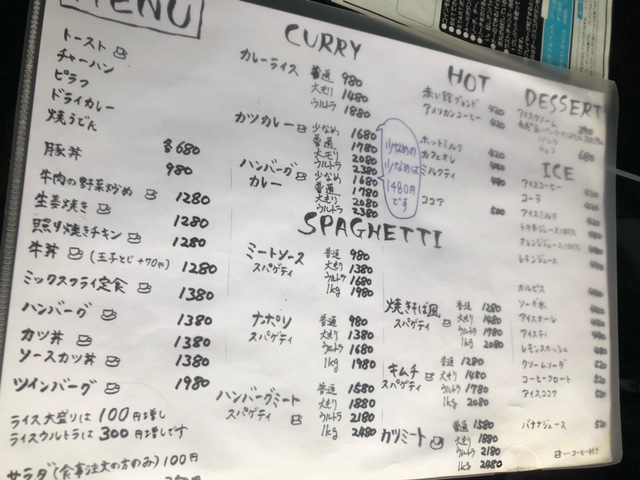 MENU
トースト
チャーハン
ピラフ
ドライカレー
焼うどん
各680
豚丼 980
牛肉の野菜炒め 1280
生姜焼き 1280
照り焼きチキン 1280
牛丼 (玉子とじ +70円) 1280
ミックスフライ定食 1380
ハンバーグ 1380
カツ丼 1380
ソースカツ丼 1380
ツインバーグ 1980
ライス大盛りは100円増し
ライスウルトラは300円増しです
サラダ(食事注文の方のみ)100円
CURRY
カレーライス 普通 980
大モリ 1480
ウルトラ 1880
カツカレー 少なめ 1680
普通 1780
大モリ 2080
ウルトラ 2380
ハンバーグカレー 少なめ 1680
普通 1780
大モリ 2080
ウルトラ 2380
少なめの
少なめは
1480円
です
SPAGHETTI
ミートソース
スパゲティ
普通 980
大モリ 1380
ウルトラ 1680
1kg 1980
ナポリ
スパゲティ
普通 980
大モリ 1380
ウルトラ 1680
1kg 1980
ハンバーグミート
スパゲティ
普通 1580
大モリ 1880
ウルトラ 2180
1kg 2480
焼きそば風
スパゲティ
普通 1280
大モリ 1480
ウルトラ 1780
1kg 2080
キムチ
スパゲティ
普通 1280
大モリ 1480
ウルトラ 1780
1kg 2080
カツミート
普通 1580
大モリ 1880
ウルトラ 2180
1kg 2480
HOT
ブレンド 420
アメリカンコーヒー 420
ホットミルク 420
カフェオレ 420
ミルクティ 480
ココア 500
DESSERT
アイスクリーム
680
ICE
アイスコーヒー 420
コーラ 420
アイスミルク
トマトジュース
オレンジジュース
レモンジュース
カルピス
ソーダ水
アイスオーレ
アイスティ
レモンスカッシュ
クリームソーダ 520
コーヒーフロート 520
アイスココア 520
バナナジュース 520
…コーヒー付き